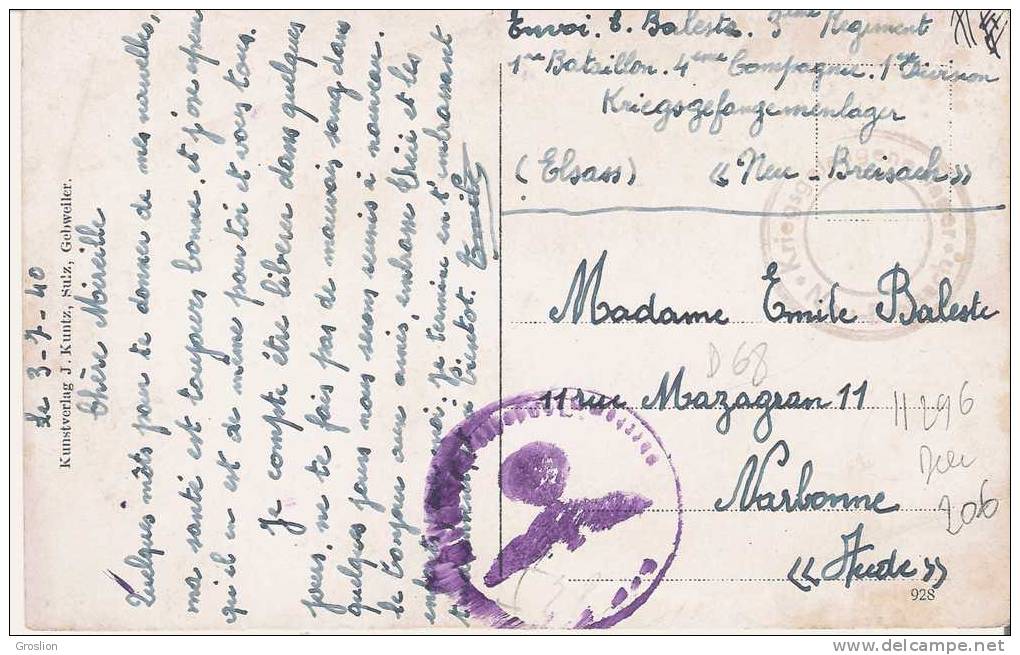 Envoi. E. Baleste. 3ème Regiment
1re Bataillon. 4ème Compagnie. 1re Division
Kriegsgefangemenlager
(Elsass) « Neu-Breisach »
Madame Emile Baleste
11 rue Mazagran 11
Narbonne
« Aude »
D 68
11296
206
928
Kunstverlag J. Kuntz, Sulz, Gebweiler.
Le 3-7-40
Chère Mireille
Quelques mots pour te donner de mes nouvelles,
ma santé est toujours bonne. et j'ose espérer
qu'il en est de même pour toi et vous tous.
Je compte être libéré dans quelques
jours, ne te fais pas de mauvais sang, dans
quelques jours nous serons reunis à nouveau.
le bonjour aux amis, embrasse et les
moi. Je termine en t'embrassant
bientot. Emile
Kriegsgefangenenlager
Groslion
delcampe.net